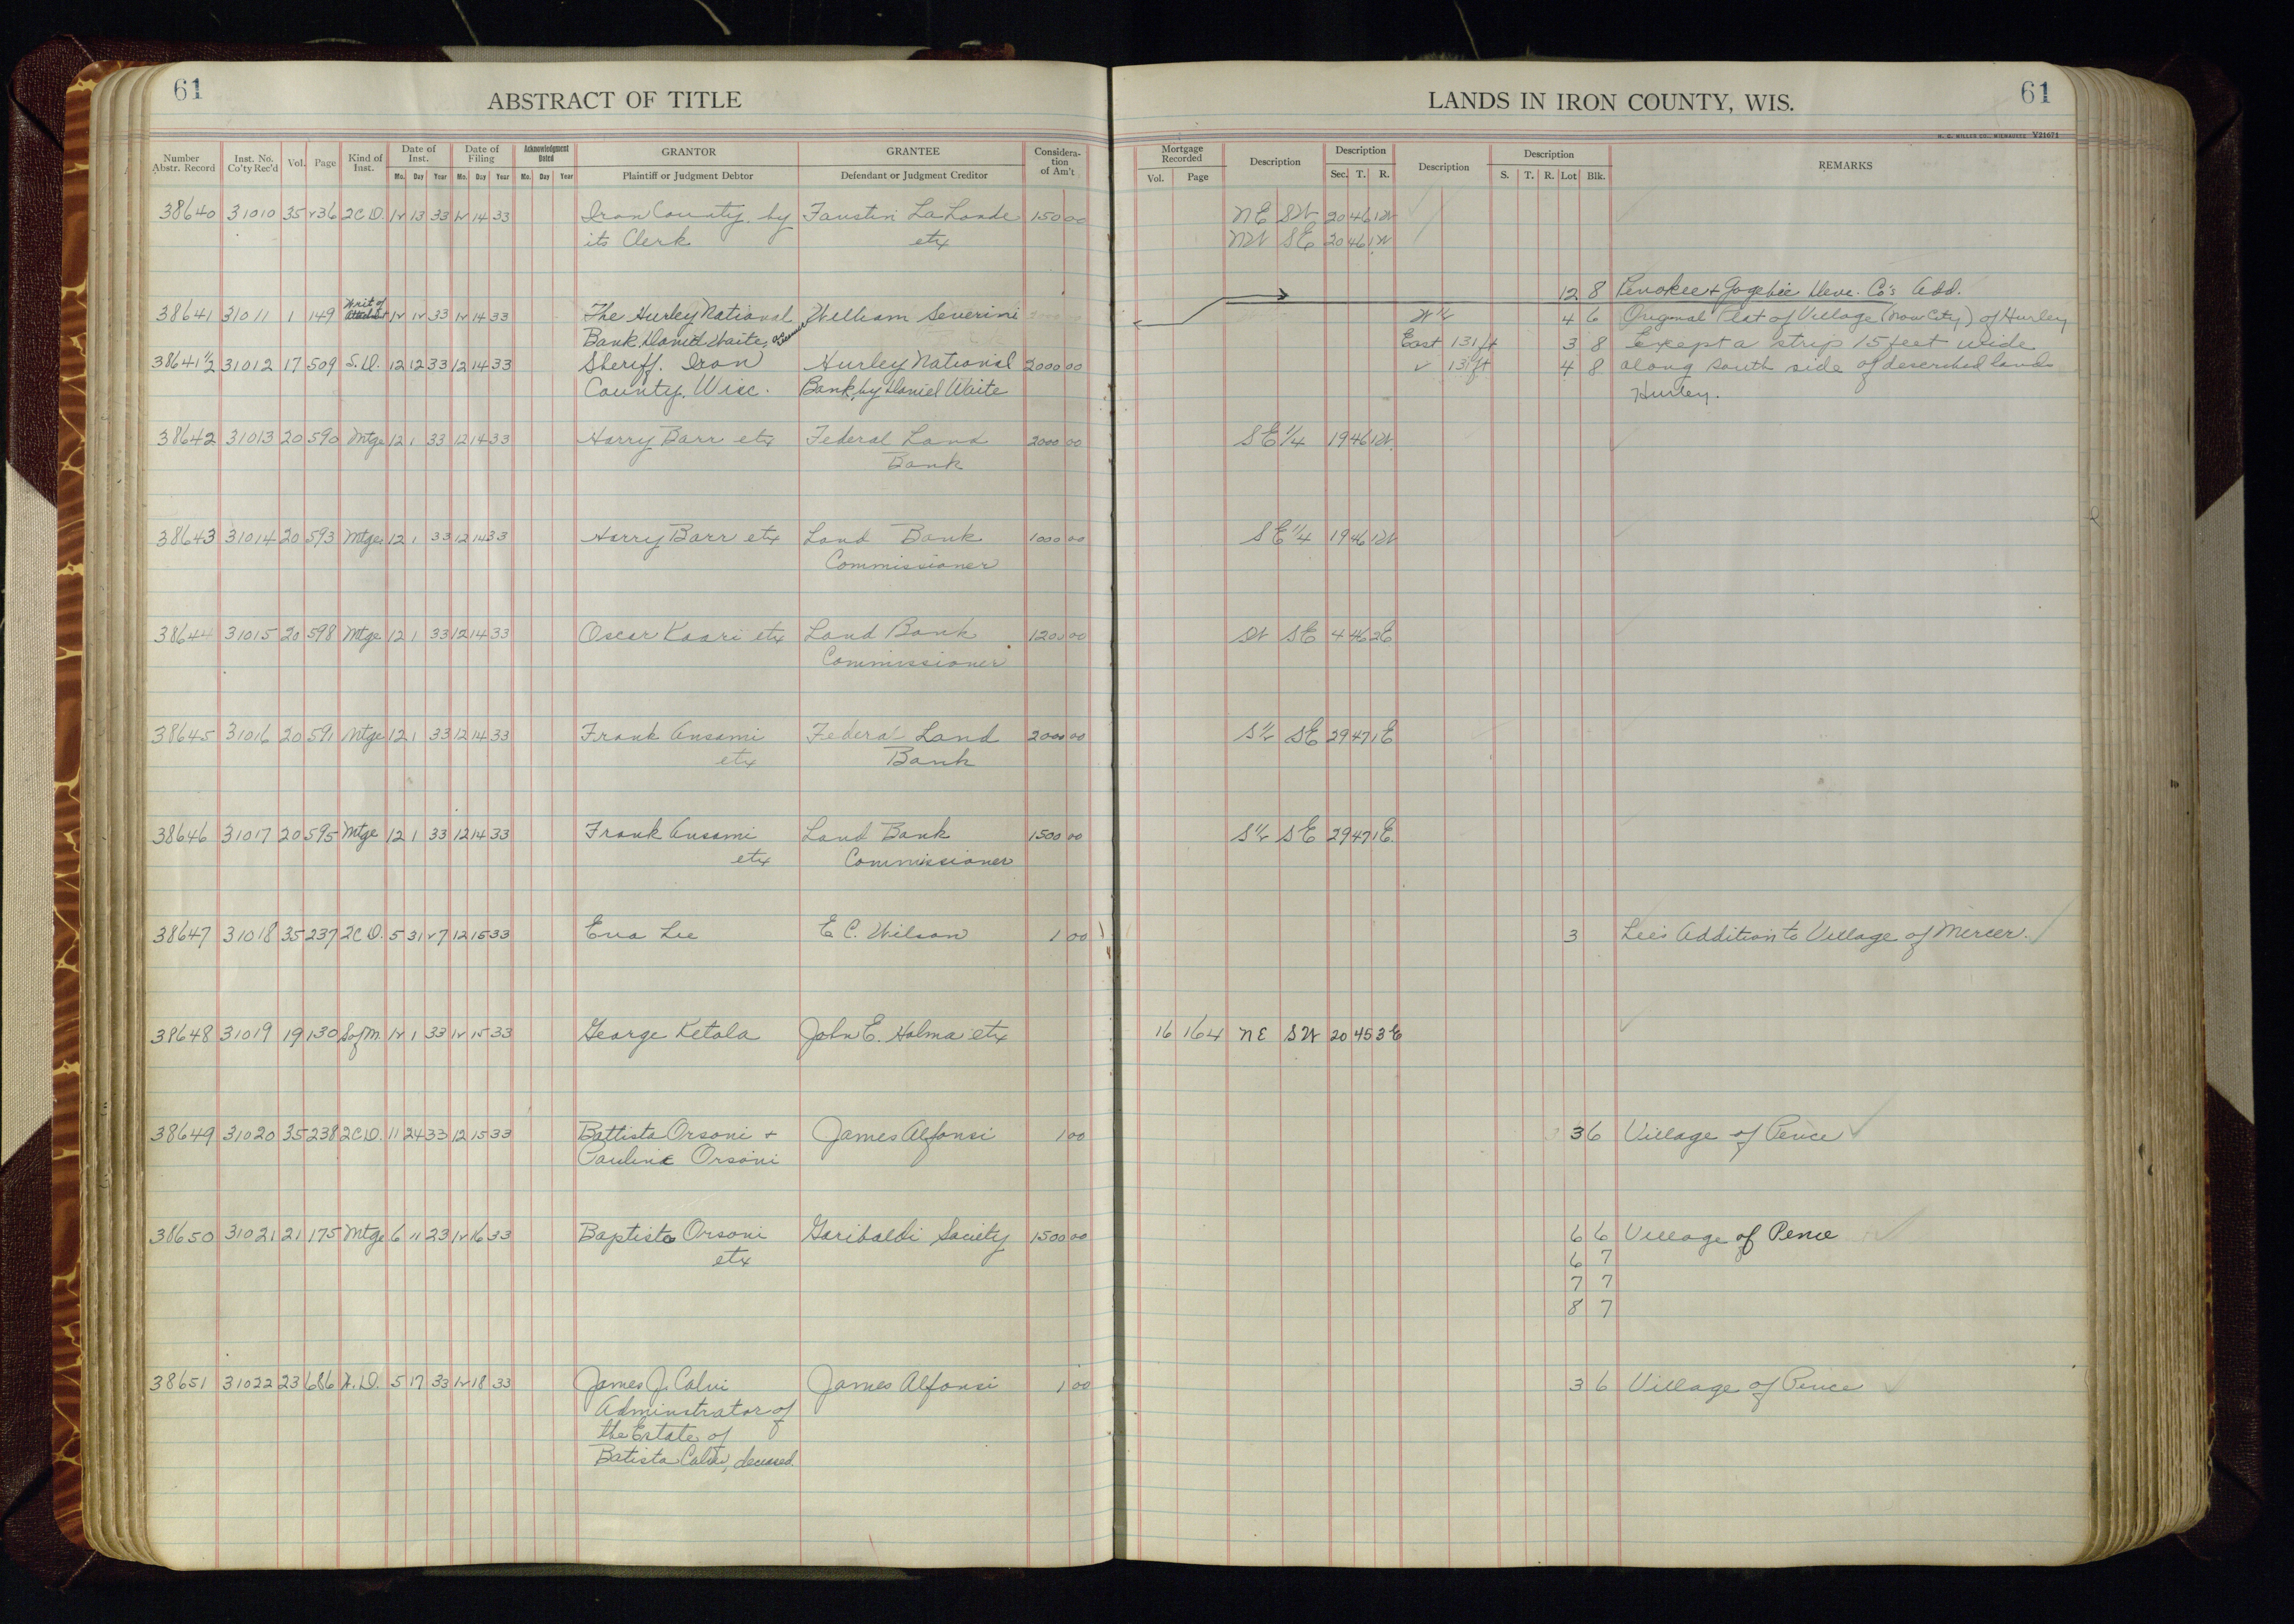 61
ABSTRACT OF TITLE
Number Abstr. Record Inst. No. Co'ty Rec'd Vol. Page Kind of Inst. Date of Inst. Mo. Day Year Date of Filing Mo. Day Year Acknowledgment Dated Mo. Day Year GRANTOR Plaintiff or Judgment Debtor GRANTEE Defendant or Judgment Creditor Considera-tion of Am't
38640 31010 35 236 2CD. 12 13 33 12 14 33 Iron County. by Faustin LaLonde 150 00
its Clerk etx
Writ of
38641 31011 1 149 12 12 33 12 14 33 The Hurley National William Severini
Bank, Daniel Waite,
38641 1/2 31012 17 509 S.D. 12 12 33 12 14 33 Sheriff. Iron Hurley National 2000 00
County, Wisc. Bank, by Daniel Waite
38642 31013 20 590 Mtge 12 1 33 12 14 33 Harry Barr etx Federal Land 2000 00
Bank
38643 31014 20 593 Mtge 12 1 33 12 14 33 Harry Barr etx Land Bank 1000 00
Commissioner
38644 31015 20 598 Mtge 12 1 33 12 14 33 Oscar Kaari etx Land Bank 1200 00
Commissioner
38645 31016 20 591 Mtge 12 1 33 12 14 33 Frank Ansami Federal Land 2000 00
etx Bank
38646 31017 20 595 Mtge 12 1 33 12 14 33 Frank Ansami Land Bank 1500 00
etx Commissioner
38647 31018 35 237 2CD. 5 31 27 12 15 33 Eva Lee E.C. Wilson 1 00
38648 31019 19 130 SofM. 12 1 33 12 15 33 George Ketola John E. Holma etx
38649 31020 35 238 2CD. 11 24 33 12 15 33 Battista Orsoni + James Alfonsi 1 00
Pauline Orsoni
38650 31021 21 175 Mtge 6 11 23 12 16 33 Baptista Orsoni Garibaldi Society 1500 00
etx
38651 31022 23 686 5 17 33 12 18 33 James J. Calvi James Alfonsi 1 00
Adminstrator of
the Estate of
Batista Calvi, deceased.
61
LANDS IN IRON COUNTY, WIS.
H. C. MILLER CO., MILWAUKEE V21671
Mortgage Recorded Vol. Page Description Description Sec. T. R. Description Description S. T. R. Lot Blk. REMARKS
NE SW 20 46 1W
NW SE 20 46 1W
12 8 Penokee & Gogebic Deve. Co's Add.
W 1/2 4 6 Original Plat of Village (Now City) of Hurley
East 131 ft 3 8 Except a strip 15 feet wide
" 131 ft 4 8 along south side of described lands
Hurley.
SE 1/4 19 46 1W
SE 1/4 19 46 1W
SW SE 4 46 2E
S 1/2 SE 29 47 1E
S 1/2 SE 29 47 1E.
3 Lee's Addition to Village of Mercer.
16 164 NE SW 20 45 3E
3 6 Village of Pence
6 6 Village of Pence
6 7
7 7
8 7
3 6 Village of Pence